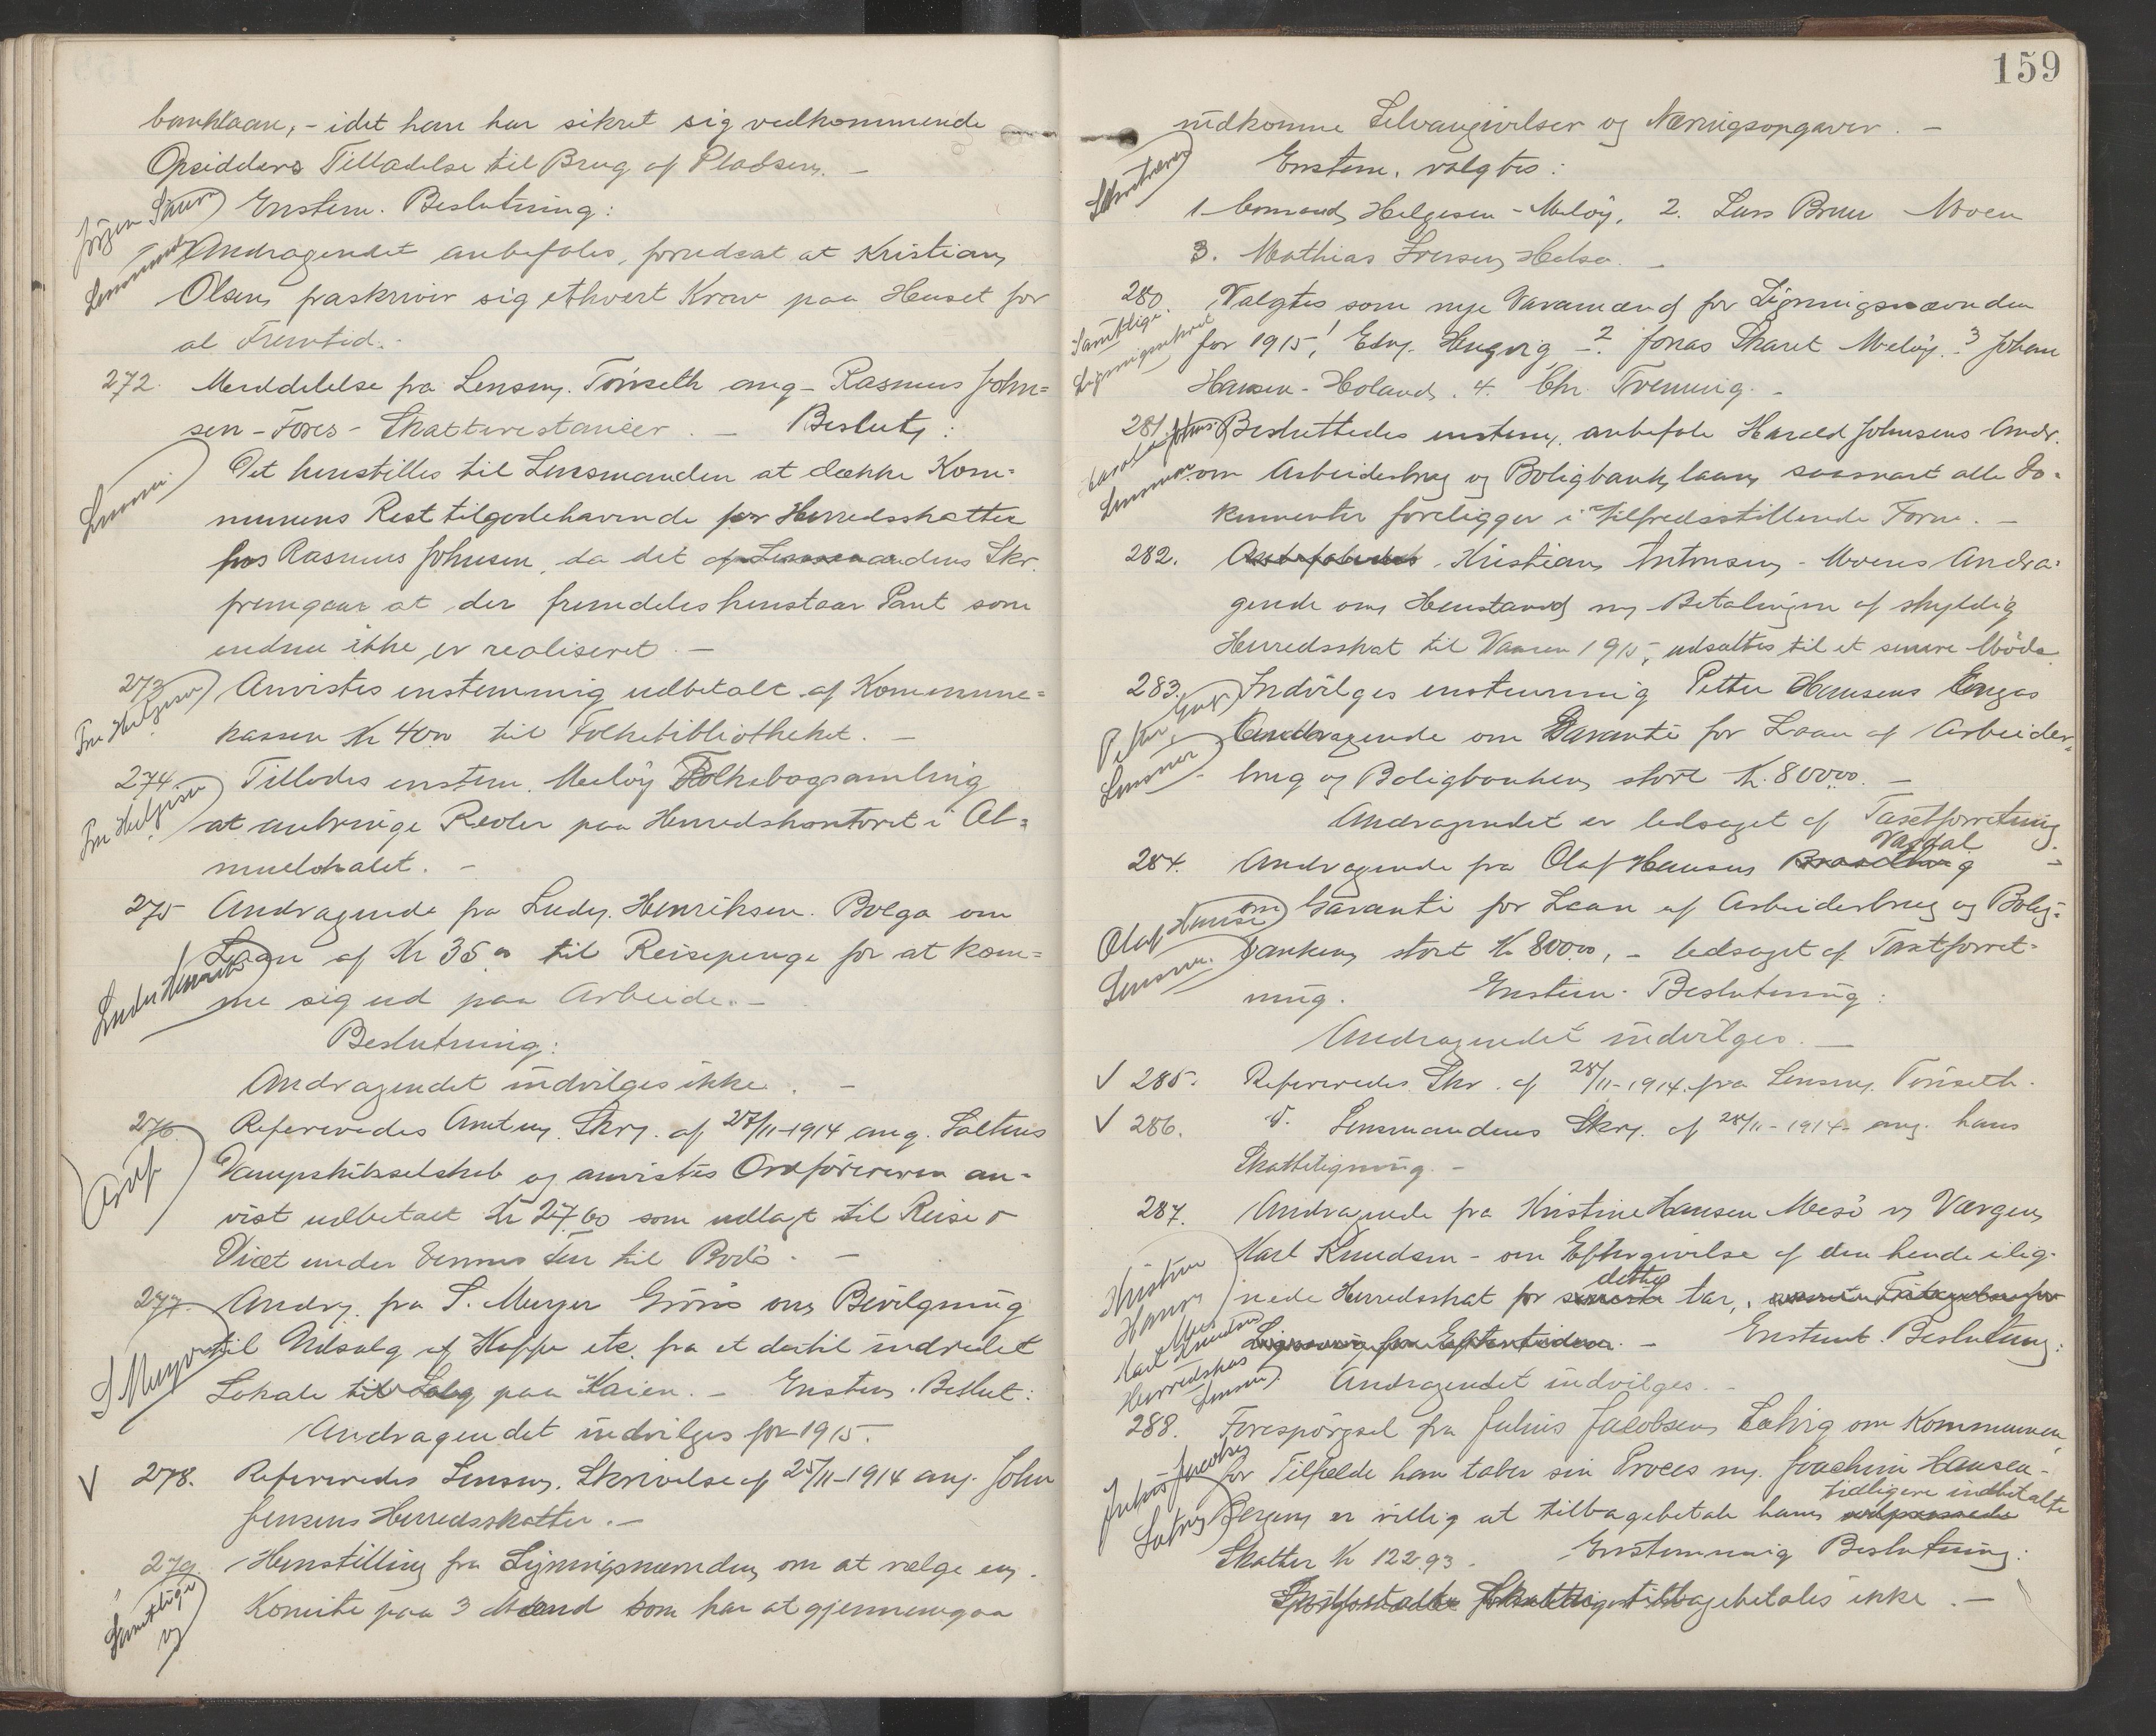 banklaan, - idet han har sikret sig vedkommende
Opsidders Tilladelse til Brug af Pladsen. -
Enstem. Beslutning:
Andragendet anbefales, forudsat at Kristian
Olsen fraskriver sig ethvert Krav paa Huset for
al Fremtid. -
272. Meddelelse fra Lensm. Tönseth ang - Rasmus John=
sen - Fores - Skatterestancer. - Beslutn:
Det henstilles til Lensmanden at dække Kom=
munens Resttilgodehavende for Herredsskatter
hos Rasmus Johnsen, da det af Lensmandens Skr.
fremgaar at der fremdeles henstaar Pant som
endnu ikke er realiseret. -
273 Anvistes enstemmig udbetalt af Kommune=
kassen Kr 40,00 til Folkebibliotheket. -
Fru Helgesen
274. Tillodes enstem. Melöy Folkebogsamling
Fru Helgesen
at anbringe Reoler paa Herredskontoret i Al=
muelokalet. -
275 Andragende fra Ludv. Henriksen. Bolga om
Laan af Kr 35,00 til Reisepenge for at kom=
me sig ud paa Arbeide. -
Beslutning:
Andragendet indvilges ikke. -
276. Refereredes Amtm. Skr. af 27/11-1914 ang. Saltens
Dampskibsselskab og anvistes Ordföreren an=
vist udbetalt Kr 27,60 som udlagt til Reise o
Diæt under dennes Tur til Bodö. -
277. Andr. fra S. Meyer Grönö om Bevilgning
S Meyer
til Udsalg af Kaffe etc. fra et dertil indredet
Lokale til Salg paa Kaien. - Enstem. Beslut:
Andragendet indvilges for 1915.
V 278. Refereredes Lensm. Skrivelse af 25/11-1914 ang. John
Jensens Herredsskatter. -
279. Henstilling fra Ligningsnævnden om at vælge en
Komite paa 3 Mænd som har at gjennemgaa
159
indkomne Selvangivelser og Næringsopgaver. -
Enstem. valgtes:
1. Helgesen - Melöy, 2. Lars Brun Moen
3. Mathias Iversen Halsa. -
280. Valgtes som nye Varamænd for Ligningsnævnden
Samtlige
for 1915, 1 Edv. Hengvig - 2. Jonas Skaret Melöy. 3 Johan
Hansen - Holand. 4. Chr. Tvenning. -
281. Besluttedes enstem. anbefale Harald Johnsens Andr.
om Arbeiderbrug og Boligbank laan saasnart alle Do=
kumenter foreligger i tilfredsstillende Form. -
282. Anbefaledes Kristian Antonsen - Moens Andra=
gende om Henstand m Betalingen af skyldig
Herredsskat til Vaaren 1915, udsattes til et senere Möde
283. Indvilges enstemmig Petter Hansens Engas
Petter Enga
Andragende om Garanti for Laan af Arbeider=
brug og Boligbanken stort Kr. 800,00. -
Andragendet er ledsaget af Taxtforretning.
Vardal
284. Andragende fra Olaf Hansen
Olaf Hansen
om Garanti for Laan af Arbeiderbrug og Bolig=
banken stort Kr 800,00, - ledsaget af Taxtforret=
ning. Enstem. Beslutning:
Andragendet indvilges. -
V 285. Refereredes Skr. af 28/11-1914. fra Lensm. Tönseth.
V 286. d. Lensmandens Skr. af 28/11-1914 ang. hans
Skatteligning. -
287. Andragende fra Kristine Hansen Mesö v Værgen
Karl Knudsen - om Eftergivelse af den hende ilig=
dette
nede Herredsskat for seneste Aar,
Kristine
Hansen
Enstemt. Beslutning:
Karl Knudsen
Andragendet indvilges. -
288. Forespörgsel fra Julius Jacobsen Latvig om Kommunen
for Tilfælde han taber sin Proces m. Joachim Hansen -
Julius Jacobsen
Latvig
tidligere indbetalte
er villig at tilbagebetale hans
Skatter Kr 122,93. Enstemmig Beslutning:
tilbagebetales ikke. -